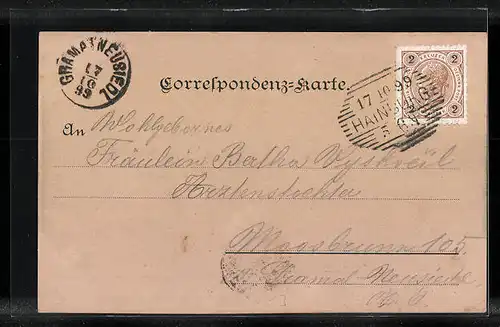 GRAMATNEUSIEDL
17
10
99
Correspondenz-Karte.
2 2
2 2
17 10 99
HAINBURG
5
An Wohlgebornes
Fräulein Bertha
Arztenstochter
Moosbrunn 105.
Gramat-Neusiedl